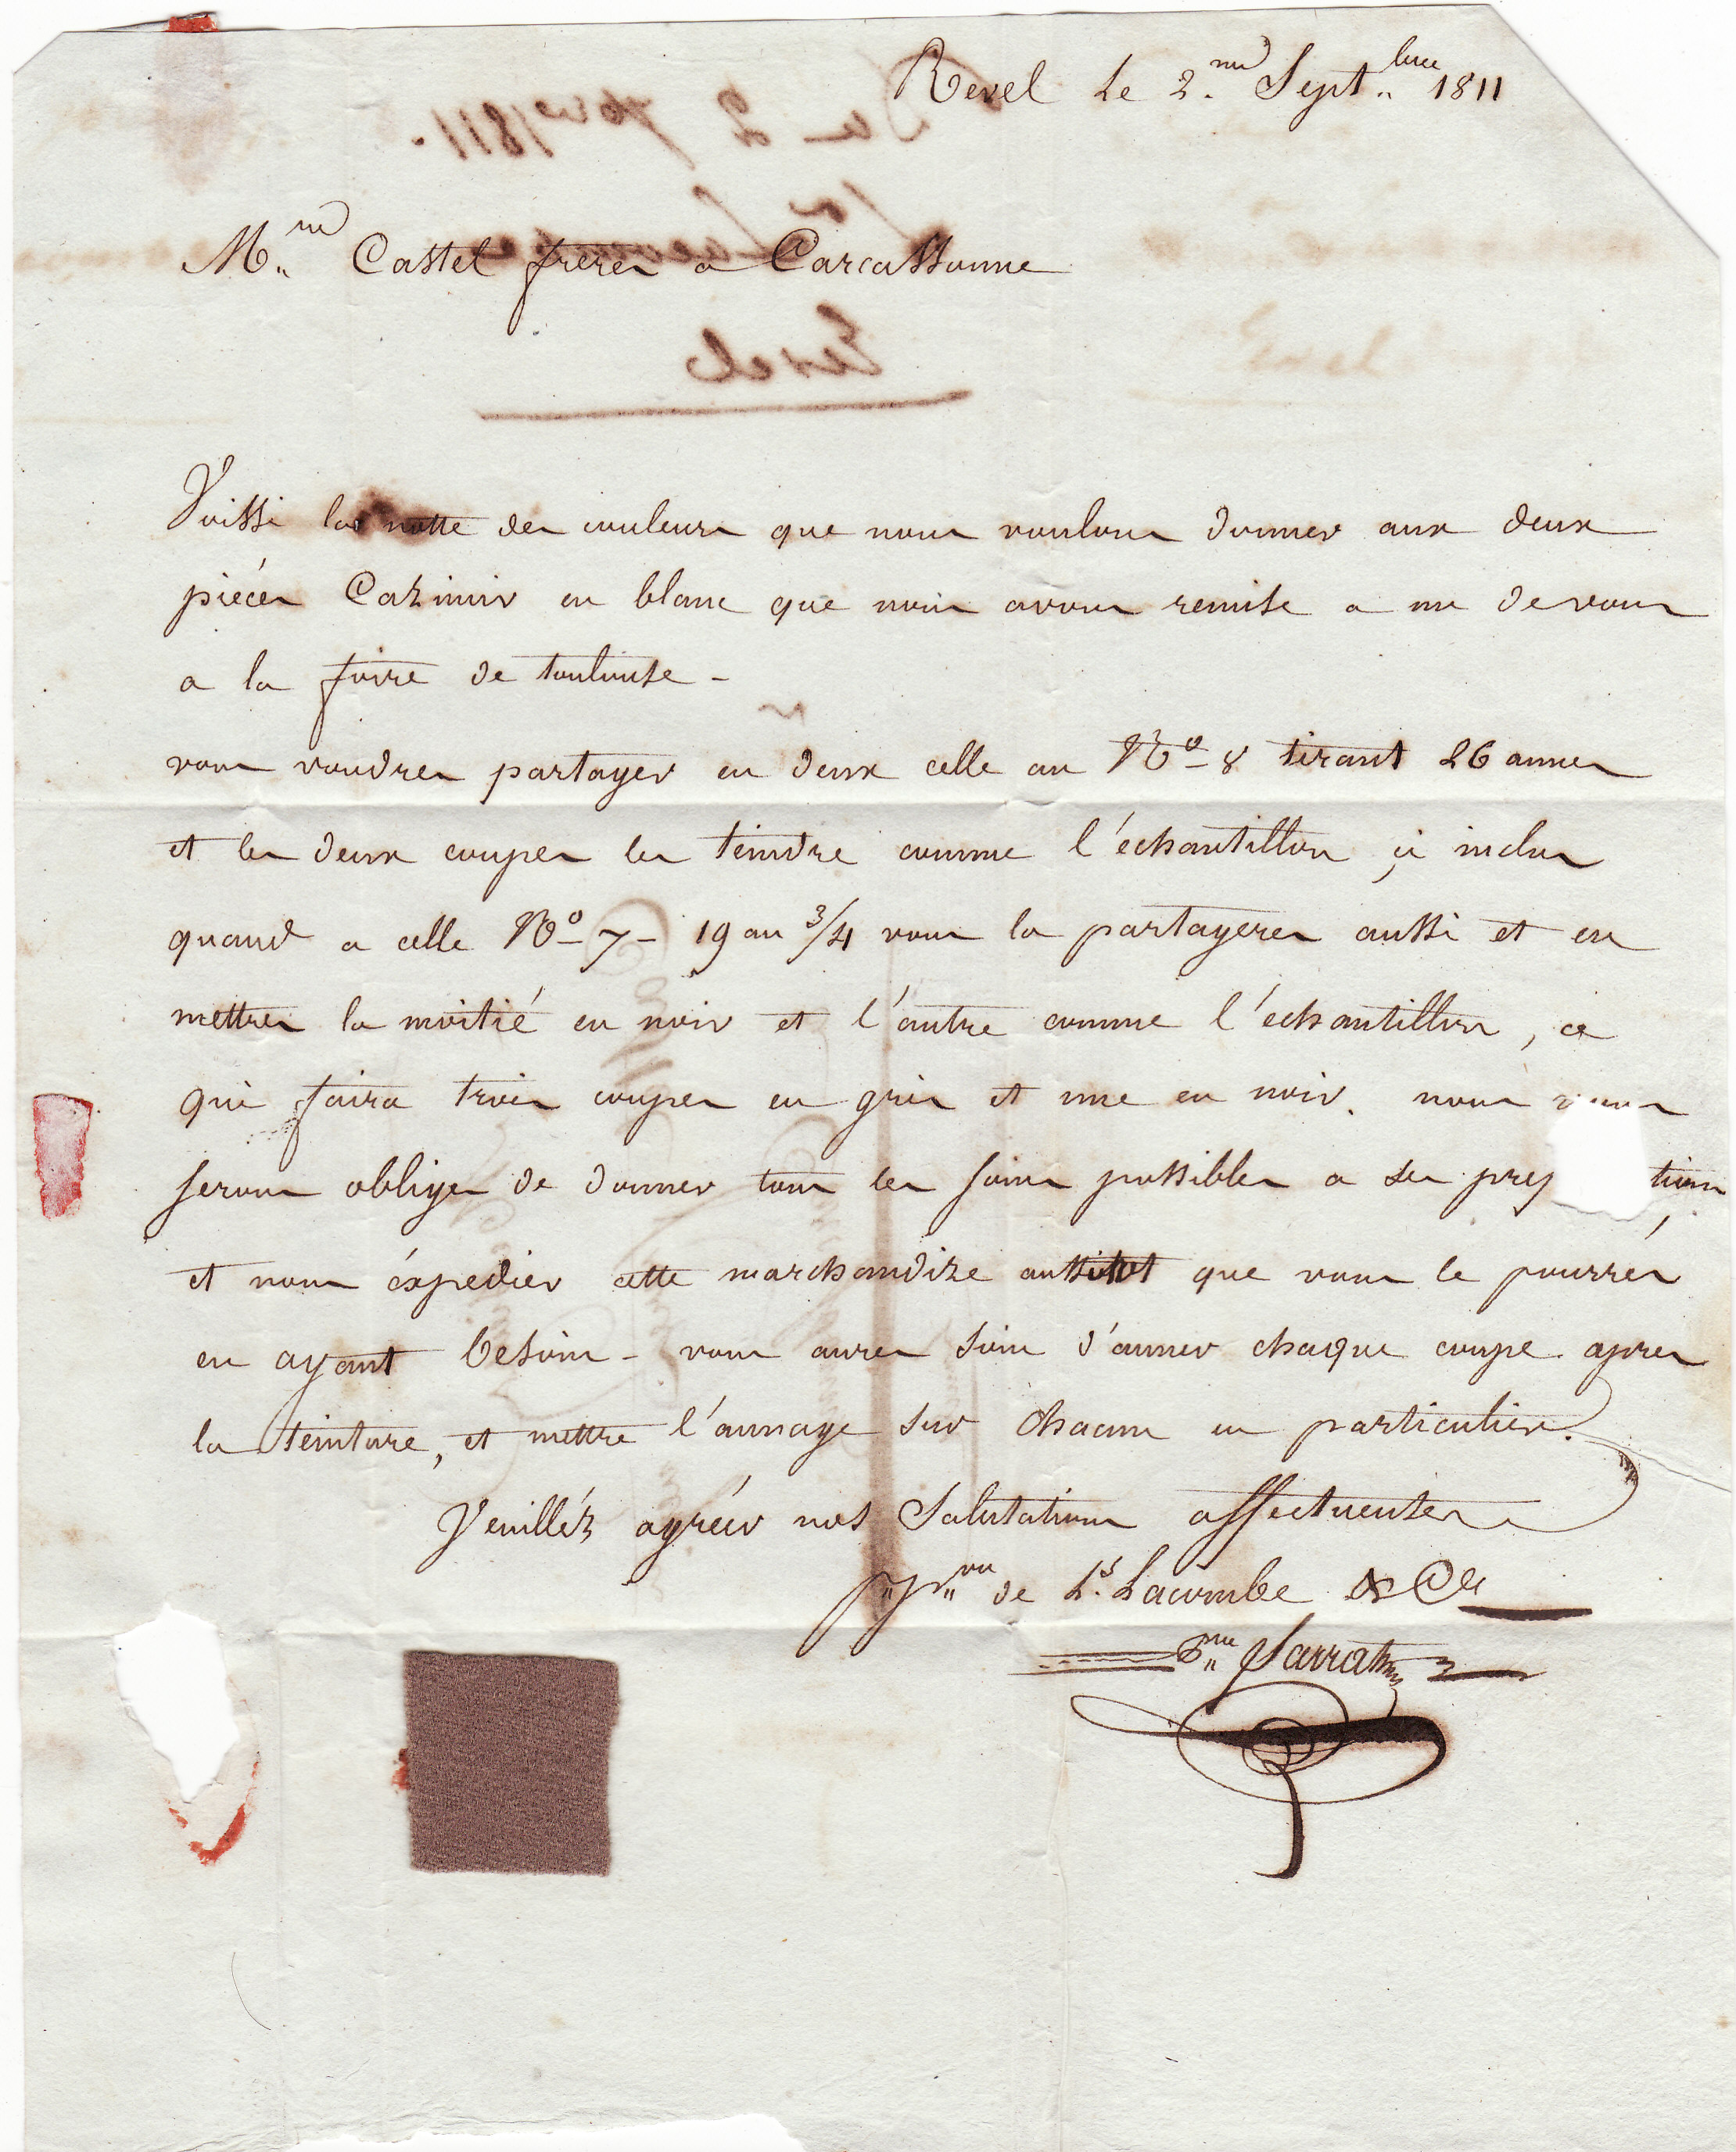 Revel Le 2.me Sept.bre 1811
Mrs Castel freres a Carcassonne
Voissi la notte des couleurs que nous voulons donner aux deux
piéces Cazimir en blanc que nous avons remise a un de vous
a la foire de toulouse -
vous voudres partager en deux celle au No 8 tirant 26 aunes
et les deux coupes les teindre comme l'échantillon çi inclus
quand a celle No - 7 - 19 au 3/4 vous la partageres aussi et en
mettres la moitié en noir et l'autre comme l'échantillon, ce
qui faira trois coupes en gris et une en noir. nous vous
serons obliges de donner tous les soins possibles a ses prep tions
et nous éxpedier cette marchandize aussitot que vous le pourrés
en ayant besoin - vous aures soin d'auner chaque coupe apres
la teinture, et mettre l'aunage sur chacun en particulier.
Veuilléz agréer nos Salutations affectueuses
de Ls. Lacombe & Cie
Sarrat
De 2 7bre 1811.
Lacombe
Revel